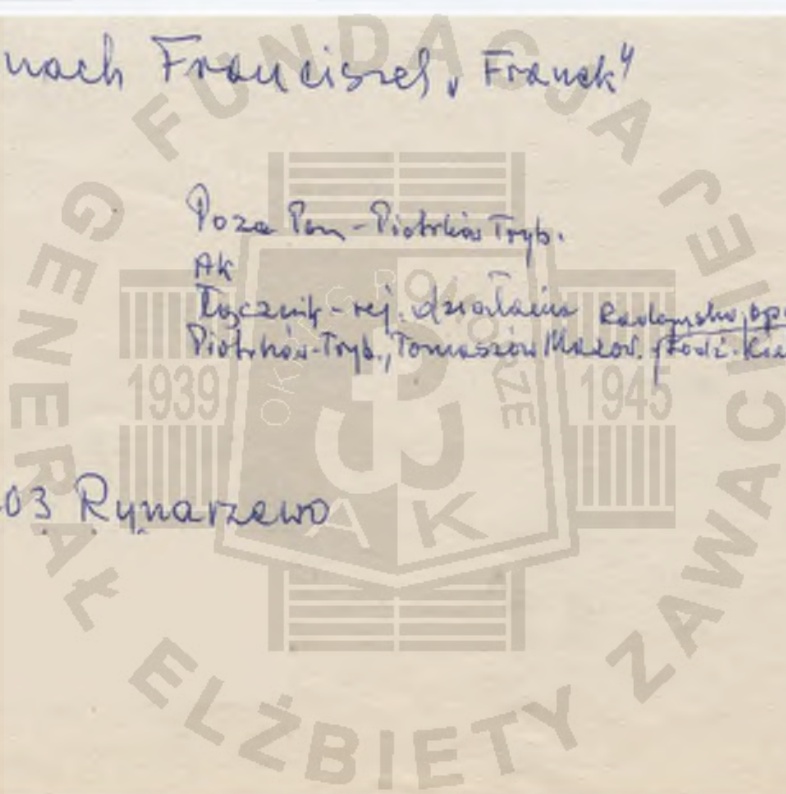 nach Franciszek „Franek"
Poza Pom - Piotrków Tryb.
AK
Łącznik - rej. działania Radomsko, opo
Piotrków-Tryb., Tomaszów Mazow. Łódź-Kie
03 Rynarzewo
FUNDACJA JEJ
GENERAŁ ELŻBIETY ZAWACKIEJ
OKRĘG POMORZE
1939
1945
AK